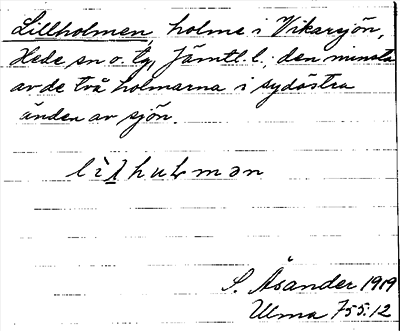 Lillholmen, holme i Vikarsjön,
Hede sn o. tg, Jämtl. l.; den minsta
av de två holmarna i sydöstra
änden av sjön.
S. Åsander 1919
Ulma 755:12